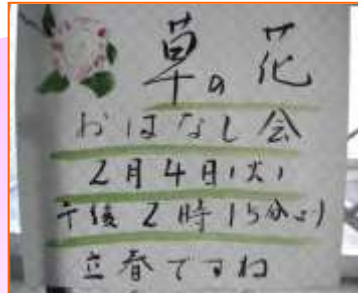 草の花
おはなし会
2月4日(火)
午後2時15分より
立春ですね